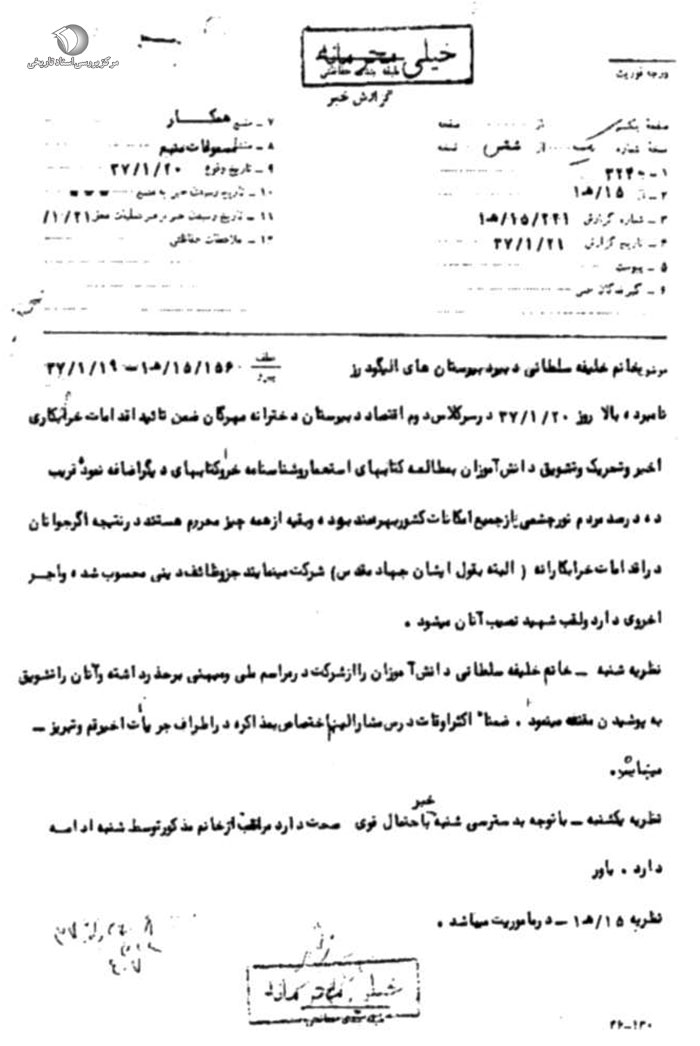 مرکز بررسی اسناد تاریخی
خیلی محرمانه
طبقه بندی حفاظتی
گزارش خبر
درجه فوریت
صفحه یکم از صفحه
نسخه شماره یک از شش نسخه
۱ - به ۳۲۴
۲ - از ۱۵/هـ۱
۳ - شماره گزارش ۱۵/۲۴۱/هـ۱
۴ - تاریخ گزارش ۳۷/۱/۲۱
۵ - پیوست
۶ - گیرندگان خبر
۷ - منبع همکار
۸ - منشا مسموعات متهم
۹ - تاریخ وقوع ۳۷/۱/۲۰
۱۰ - تاریخ رسیدن خبر به منبع
۱۱ - تاریخ رسیدن خبر به رهبر عملیات ۲۱/۱/
۱۲ - ملاحظات حفاظتی
موضوع خانم خلیفه سلطانی دبیر دبیرستان های الیگودرز
عطف پیرو ۱۵/۱۵۶۰/هـ۱ – ۳۷/۱/۱۹
نامبرده بالا روز ۳۷/۱/۲۰ در سر کلاس دوم اقتصاد دبیرستان دخترانه مهرگان ضمن تائید اقدامات خرابکاری
اخیر و تحریک و تشویق دانش آموزان بمطالعه کتابهای استعمار و شناسنامه خر و کتابهای دیگر اضافه نمود قریب
ده درصد مردم نورچشمی از جمیع امکانات کشور بهره مند بوده و بقیه از همه چیز محروم هستند در نتیجه اگر جوانان
در اقدامات خرابکارانه ( البته بقول ایشان جهاد مقدس ) شرکت مینمایند جز وظائف دینی محسوب شده و اجر
اخروی دارد و لقب شهید نصیب آنان میشود .
نظریه شنبه – خانم خلیفه سلطانی دانش آموزان را از شرکت در مراسم ملی و میهنی برحذر داشته و آنان را تشویق
به پوشیدن مقنعه مینمود . ضمنا" اکثر اوقات درس مشارالیها اختصاص بمذاکره در اطراف جریانات اخیر قم و تبریز –
مینماید .
نظریه یکشنبه – با توجه بدسترسی شنبه باحتمال قوی خبر صحت دارد مراقبت از خانم مذکور توسط شنبه ادامه
دارد . باور
نظریه ۱۵/هـ۱ – در ماموریت میباشد .
خیلی محرمانه
طبقه بندی حفاظتی
۲۶-۱۳۰